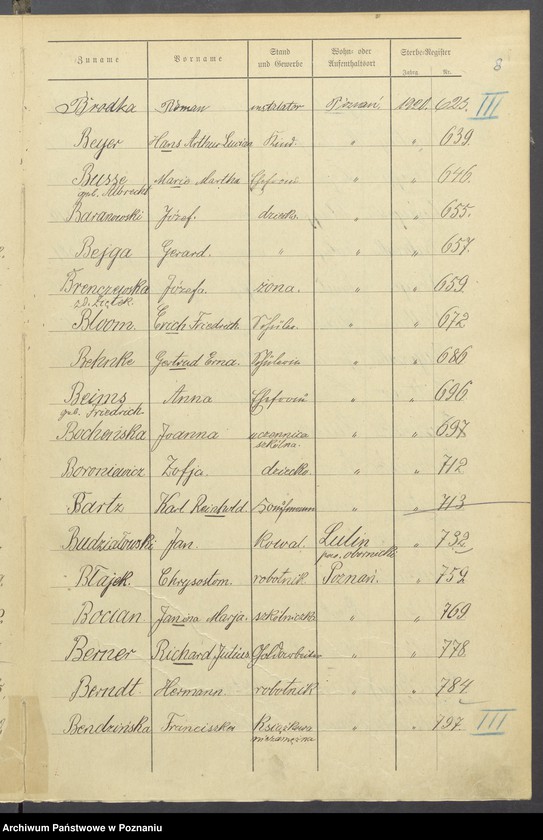 8
Zuname Vorname Stand und Gewerbe Wohn- oder Aufenthaltsort Sterbe-Register
Jahrg. Nr.
Brodka Roman instalator Poznań 1920. 623. III
Beyer Hans Arthur Lucian Kind " " 639.
Busse Maria Martha Ehefrau " " 646.
geb. Albrecht
Baranowski Józef. dziecko. " " 655.
Bejga Gerard. " " " 657.
Brenczewska Józefa żona. " " 659.
Bloom. Erich Friedrich. Schüler. " " 672
Behnke Gertrud Erna. Schülerin " " 686
Beims Anna Ehefrau " " 696
geb. Friedrich
Bocheńska Joanna uczennica " " 697
szkolna.
Boroniewicz Zofja. dziecko. " " 712
Bartz Karl Reinhold. Kaufmann " " 713
Budziałowski Jan. kowal. Lulin " 732
pow. obornicki
Błajek. Chrysostom. robotnik. Poznań. " 759
Bocian Janina Marja. szkolniczka " " 769
Berner Richard Julius Goldarbeiter " " 778
Berndt Hermann robotnik " " 784
Bendzińska Franciszka Książkowa " " 797. III
niezamężna
Archiwum Państwowe w Poznaniu